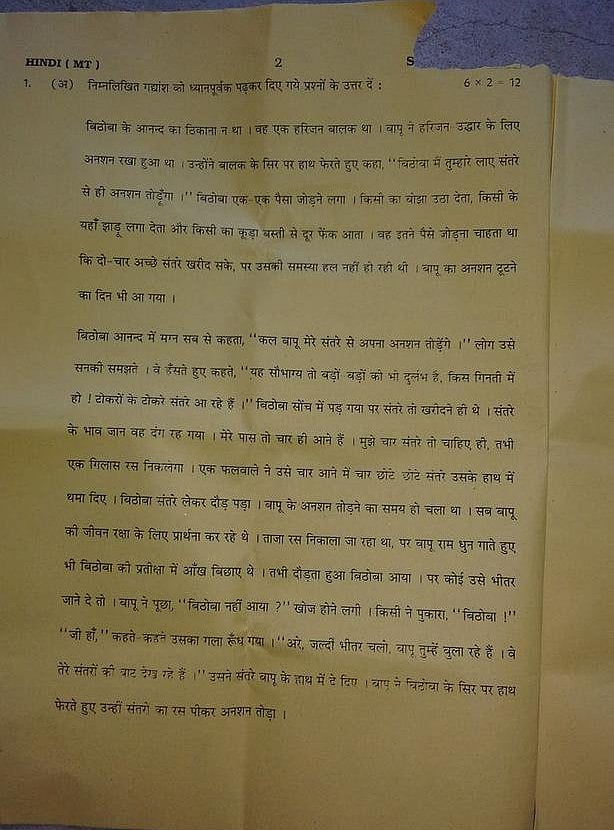 HINDI ( MT )
2
S
1. (अ) निम्नलिखित गद्यांश को ध्यानपूर्वक पढ़कर दिए गये प्रश्नों के उत्तर दें : 6 × 2 = 12
बिठोबा के आनन्द का ठिकाना न था । वह एक हरिजन बालक था । बापू ने हरिजन उद्धार के लिए
अनशन रखा हुआ था । उन्होंने बालक के सिर पर हाथ फेरते हुए कहा, "बिठोबा में तुम्हारे लाए संतरे
से ही अनशन तोड़ूँगा ।" बिठोबा एक-एक पैसा जोड़ने लगा । किसी का बोझा उठा देता, किसी के
यहाँ झाड़ू लगा देता और किसी का कूड़ा बस्ती से दूर फेंक आता । वह इतने पैसे जोड़ना चाहता था
कि दो-चार अच्छे संतरे खरीद सके, पर उसकी समस्या हल नहीं हो रही थी । बापू का अनशन टूटने
का दिन भी आ गया ।
बिठोबा आनन्द में मग्न सब से कहता, "कल बापू मेरे संतरे से अपना अनशन तोड़ेंगे ।" लोग उसे
सनकी समझते । वे हँसते हुए कहते, "यह सौभाग्य तो बड़ों बड़ों को भी दुर्लभ है, किस गिनती में
हो ! टोकरों के टोकरे संतरे आ रहे हैं ।" बिठोबा सोंच में पड़ गया पर संतरे तो खरीदने ही थे । संतरे
के भाव जान वह दंग रह गया । मेरे पास तो चार ही आने हैं । मुझे चार संतरे तो चाहिए ही, तभी
एक गिलास रस निकलेगा । एक फलवाले ने उसे चार आने में चार छोटे छोटे संतरे उसके हाथ में
थमा दिए । बिठोबा संतरे लेकर दौड़ पड़ा । बापू के अनशन तोड़ने का समय हो चला था । सब बापू
की जीवन रक्षा के लिए प्रार्थना कर रहे थे । ताजा रस निकाला जा रहा था, पर बापू राम धुन गाते हुए
भी बिठोबा की प्रतीक्षा में आँख बिछाए थे । तभी दौड़ता हुआ बिठोबा आया । पर कोई उसे भीतर
जाने दे तो । बापू ने पूछा, "बिठोबा नहीं आया ?" खोज होने लगी । किसी ने पुकारा, "बिठोबा !"
"जी हाँ," कहते-कहते उसका गला रूँध गया । "अरे, जल्दी भीतर चलो, बापू तुम्हें बुला रहे हैं । वे
तेरे संतरों की बाट देख रहे हैं ।" उसने संतरे बापू के हाथ में दे दिए । बापू ने बिठोबा के सिर पर हाथ
फेरते हुए उन्हीं संतरों का रस पीकर अनशन तोड़ा ।